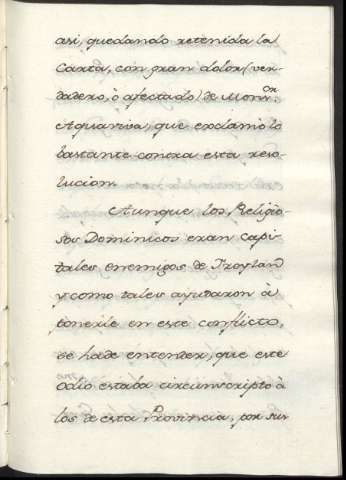 asi, quedando retenida la
Carta, con gran dolor (ver-
dadero, ò afectado) de Mons.or
Aquaviva, que exclamò lo
bastante contra esta reso-
lucion.
Aunque los Religio-
sos Dominicos eran capi-
tales enemigos de Froyland
y como tales ayudaron à
ponerle en este conflicto,
se hade entender, que este
odio estaba circunscripto à
los de esta Provincia, por sus